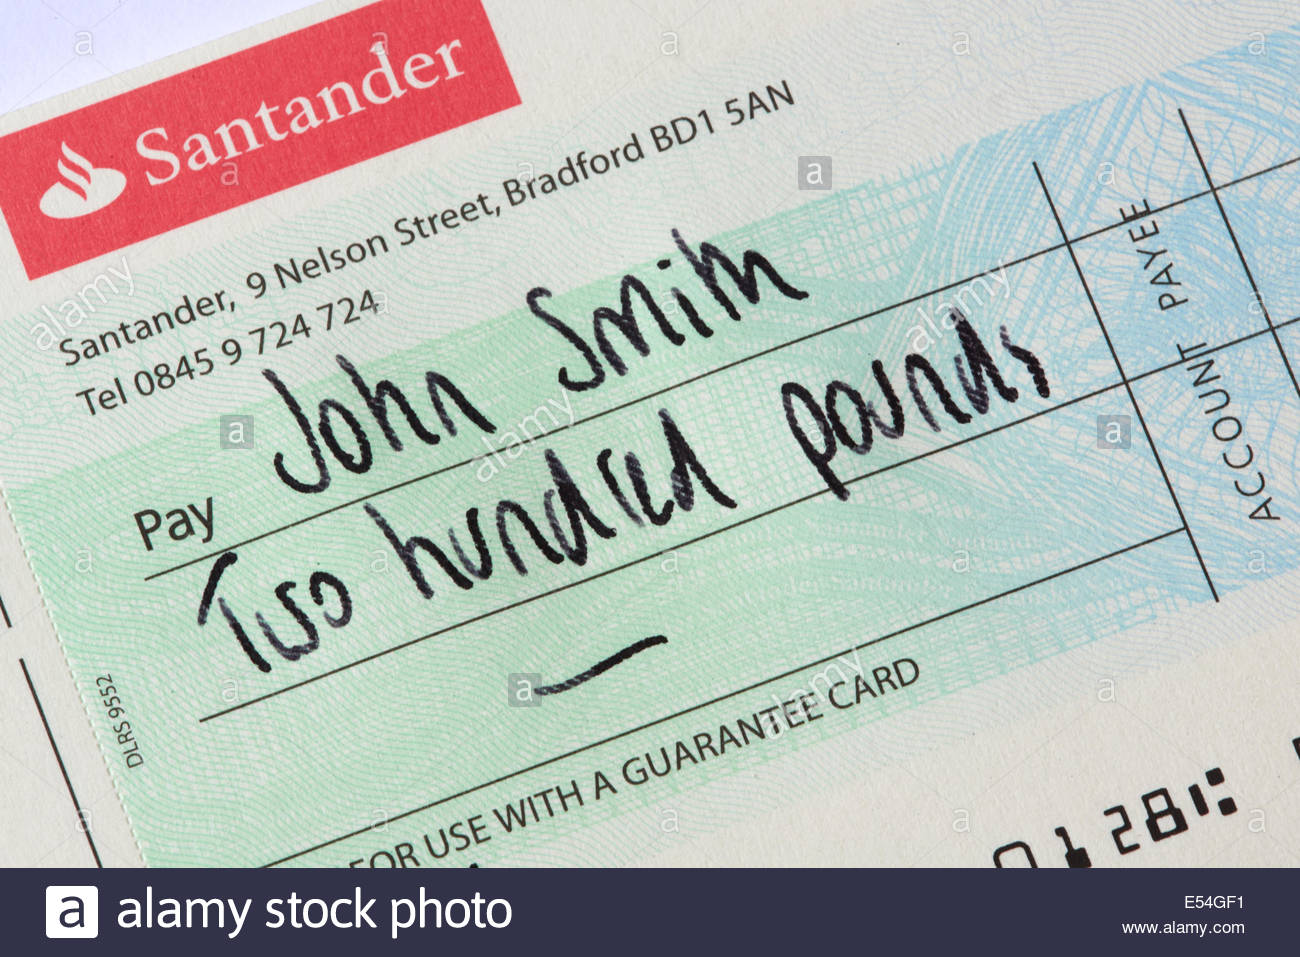 Santander
Santander, 9 Nelson Street, Bradford BD1 5AN
Tel 0845 9 724 724
Pay John Smith
Two hundred pounds
ACCOUNT PAYEE
DLRS 9552
FOR USE WITH A GUARANTEE CARD
0128
a alamy stock photo
E54GF1
www.alamy.com